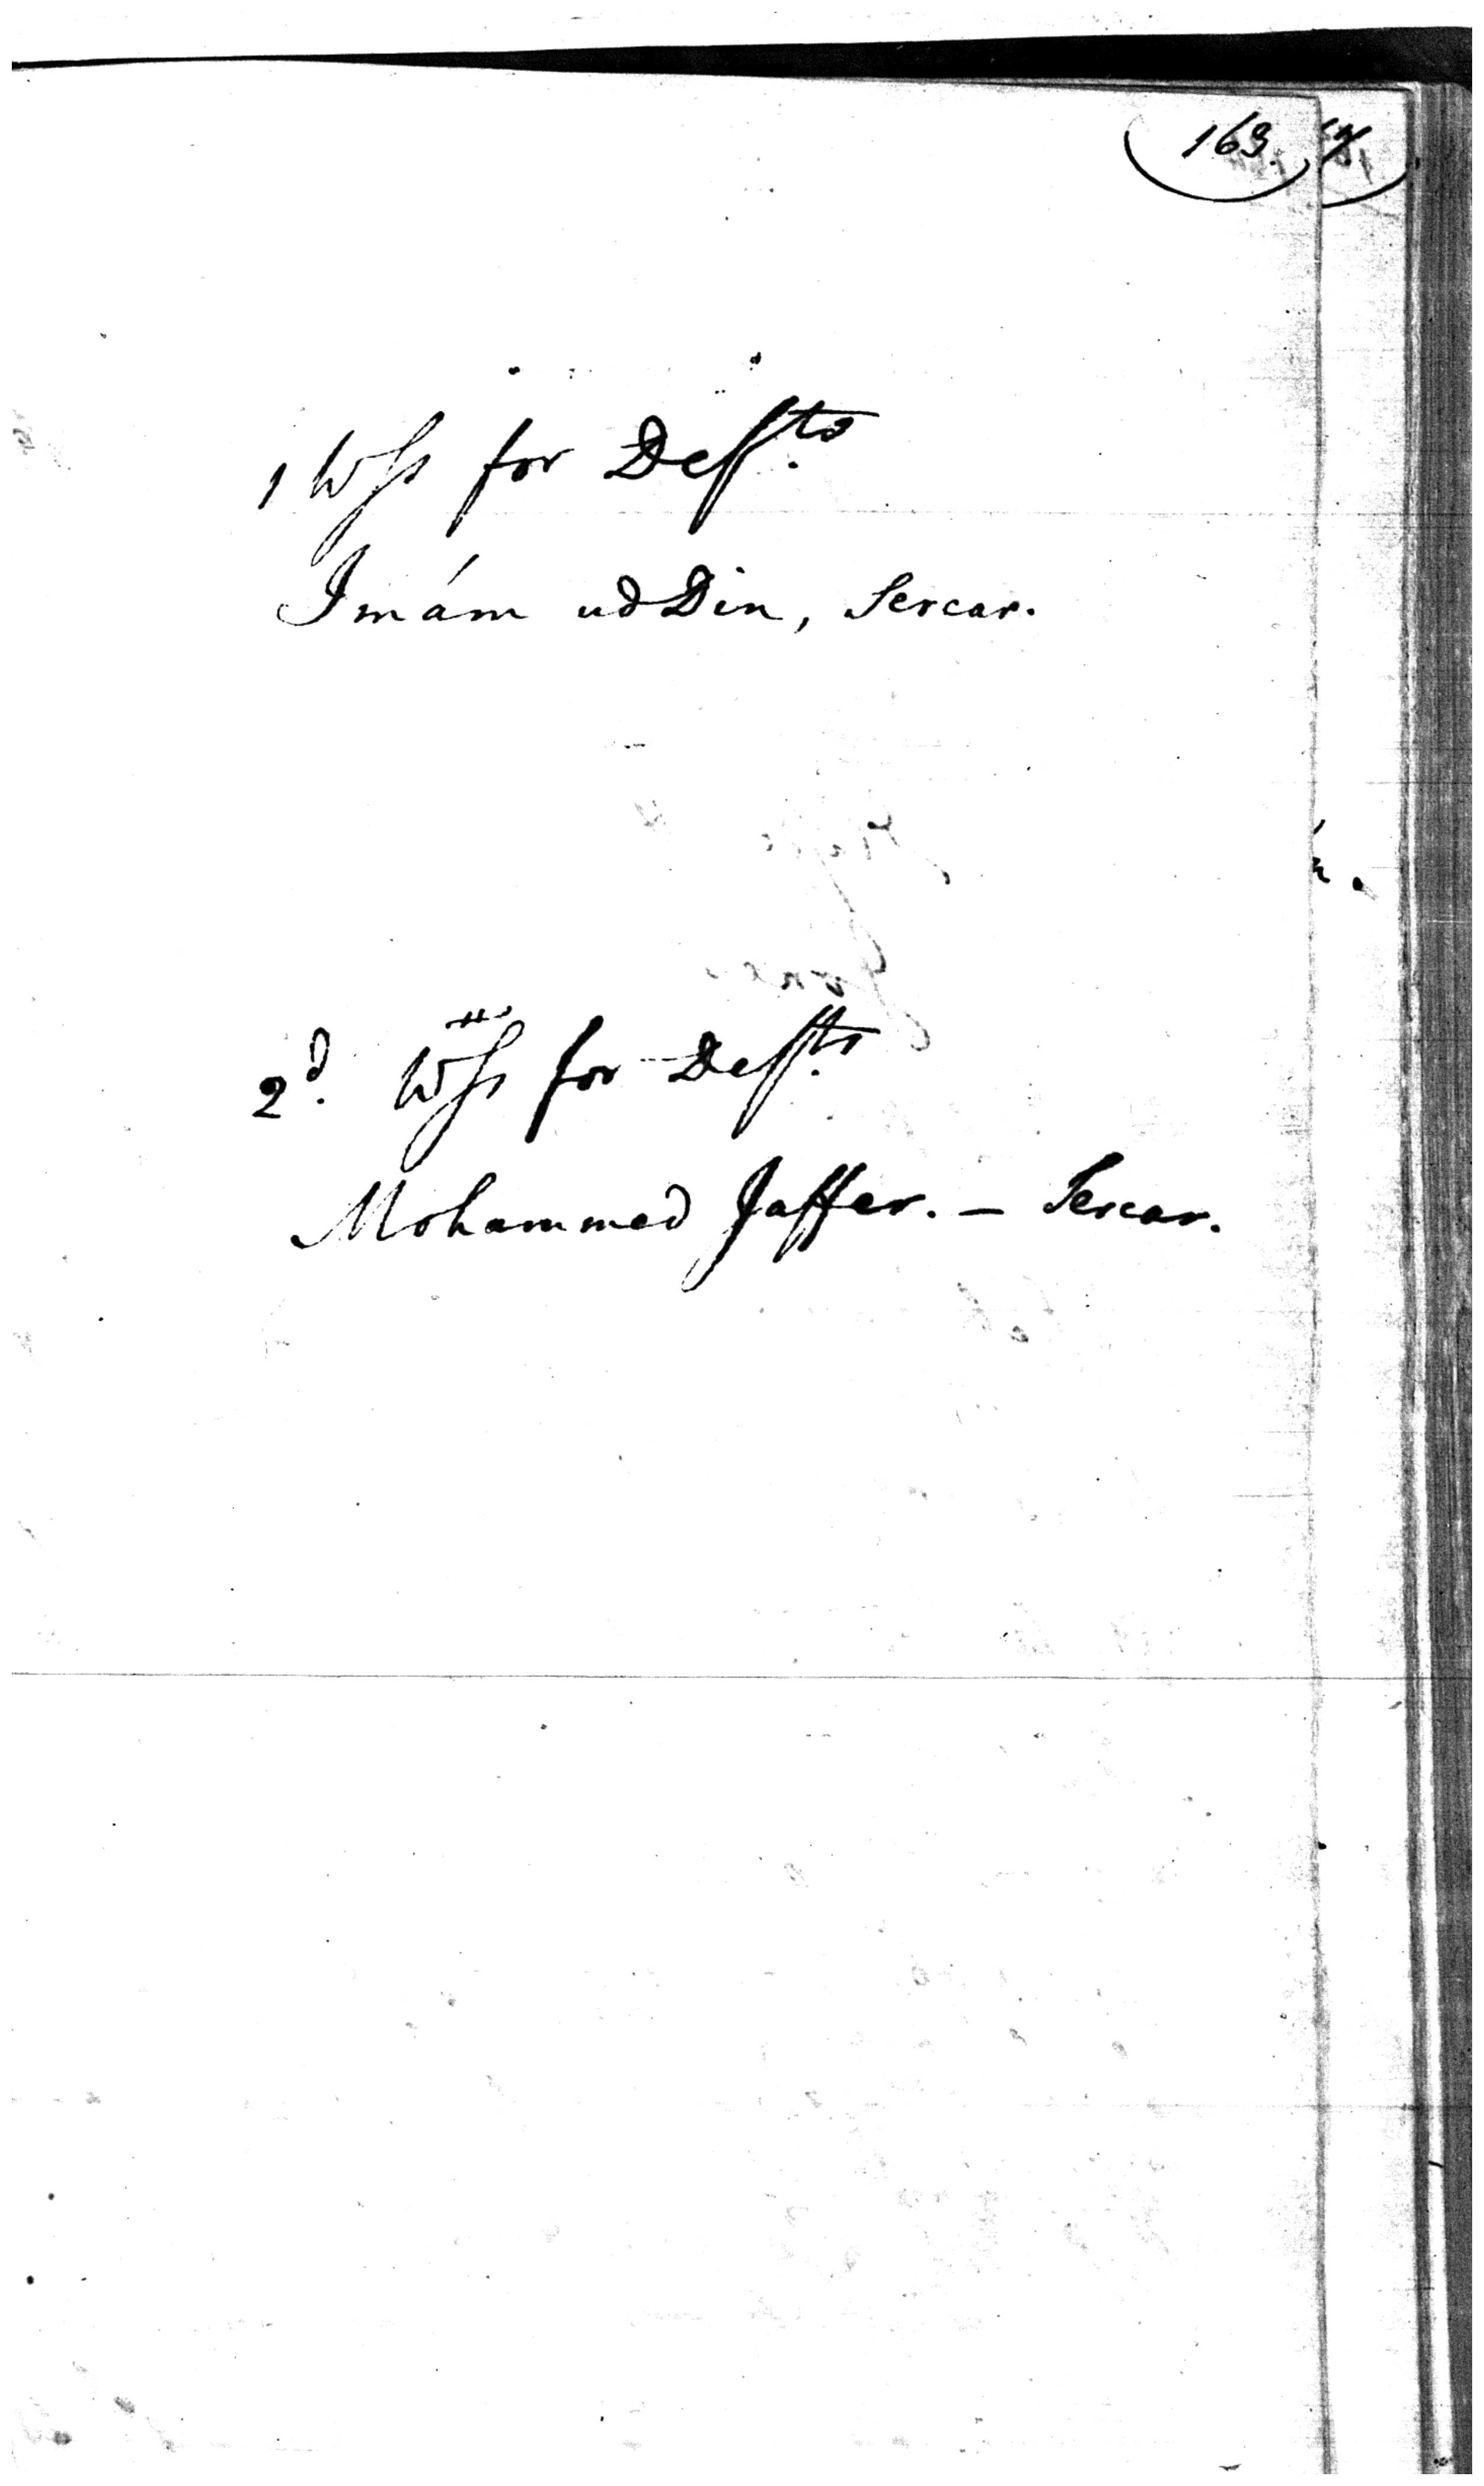 163.
1 Wss for Defts
Imám ud Din, Sercar.
2d. Wss for Defts
Mohammed Jaffer. — Sercar.